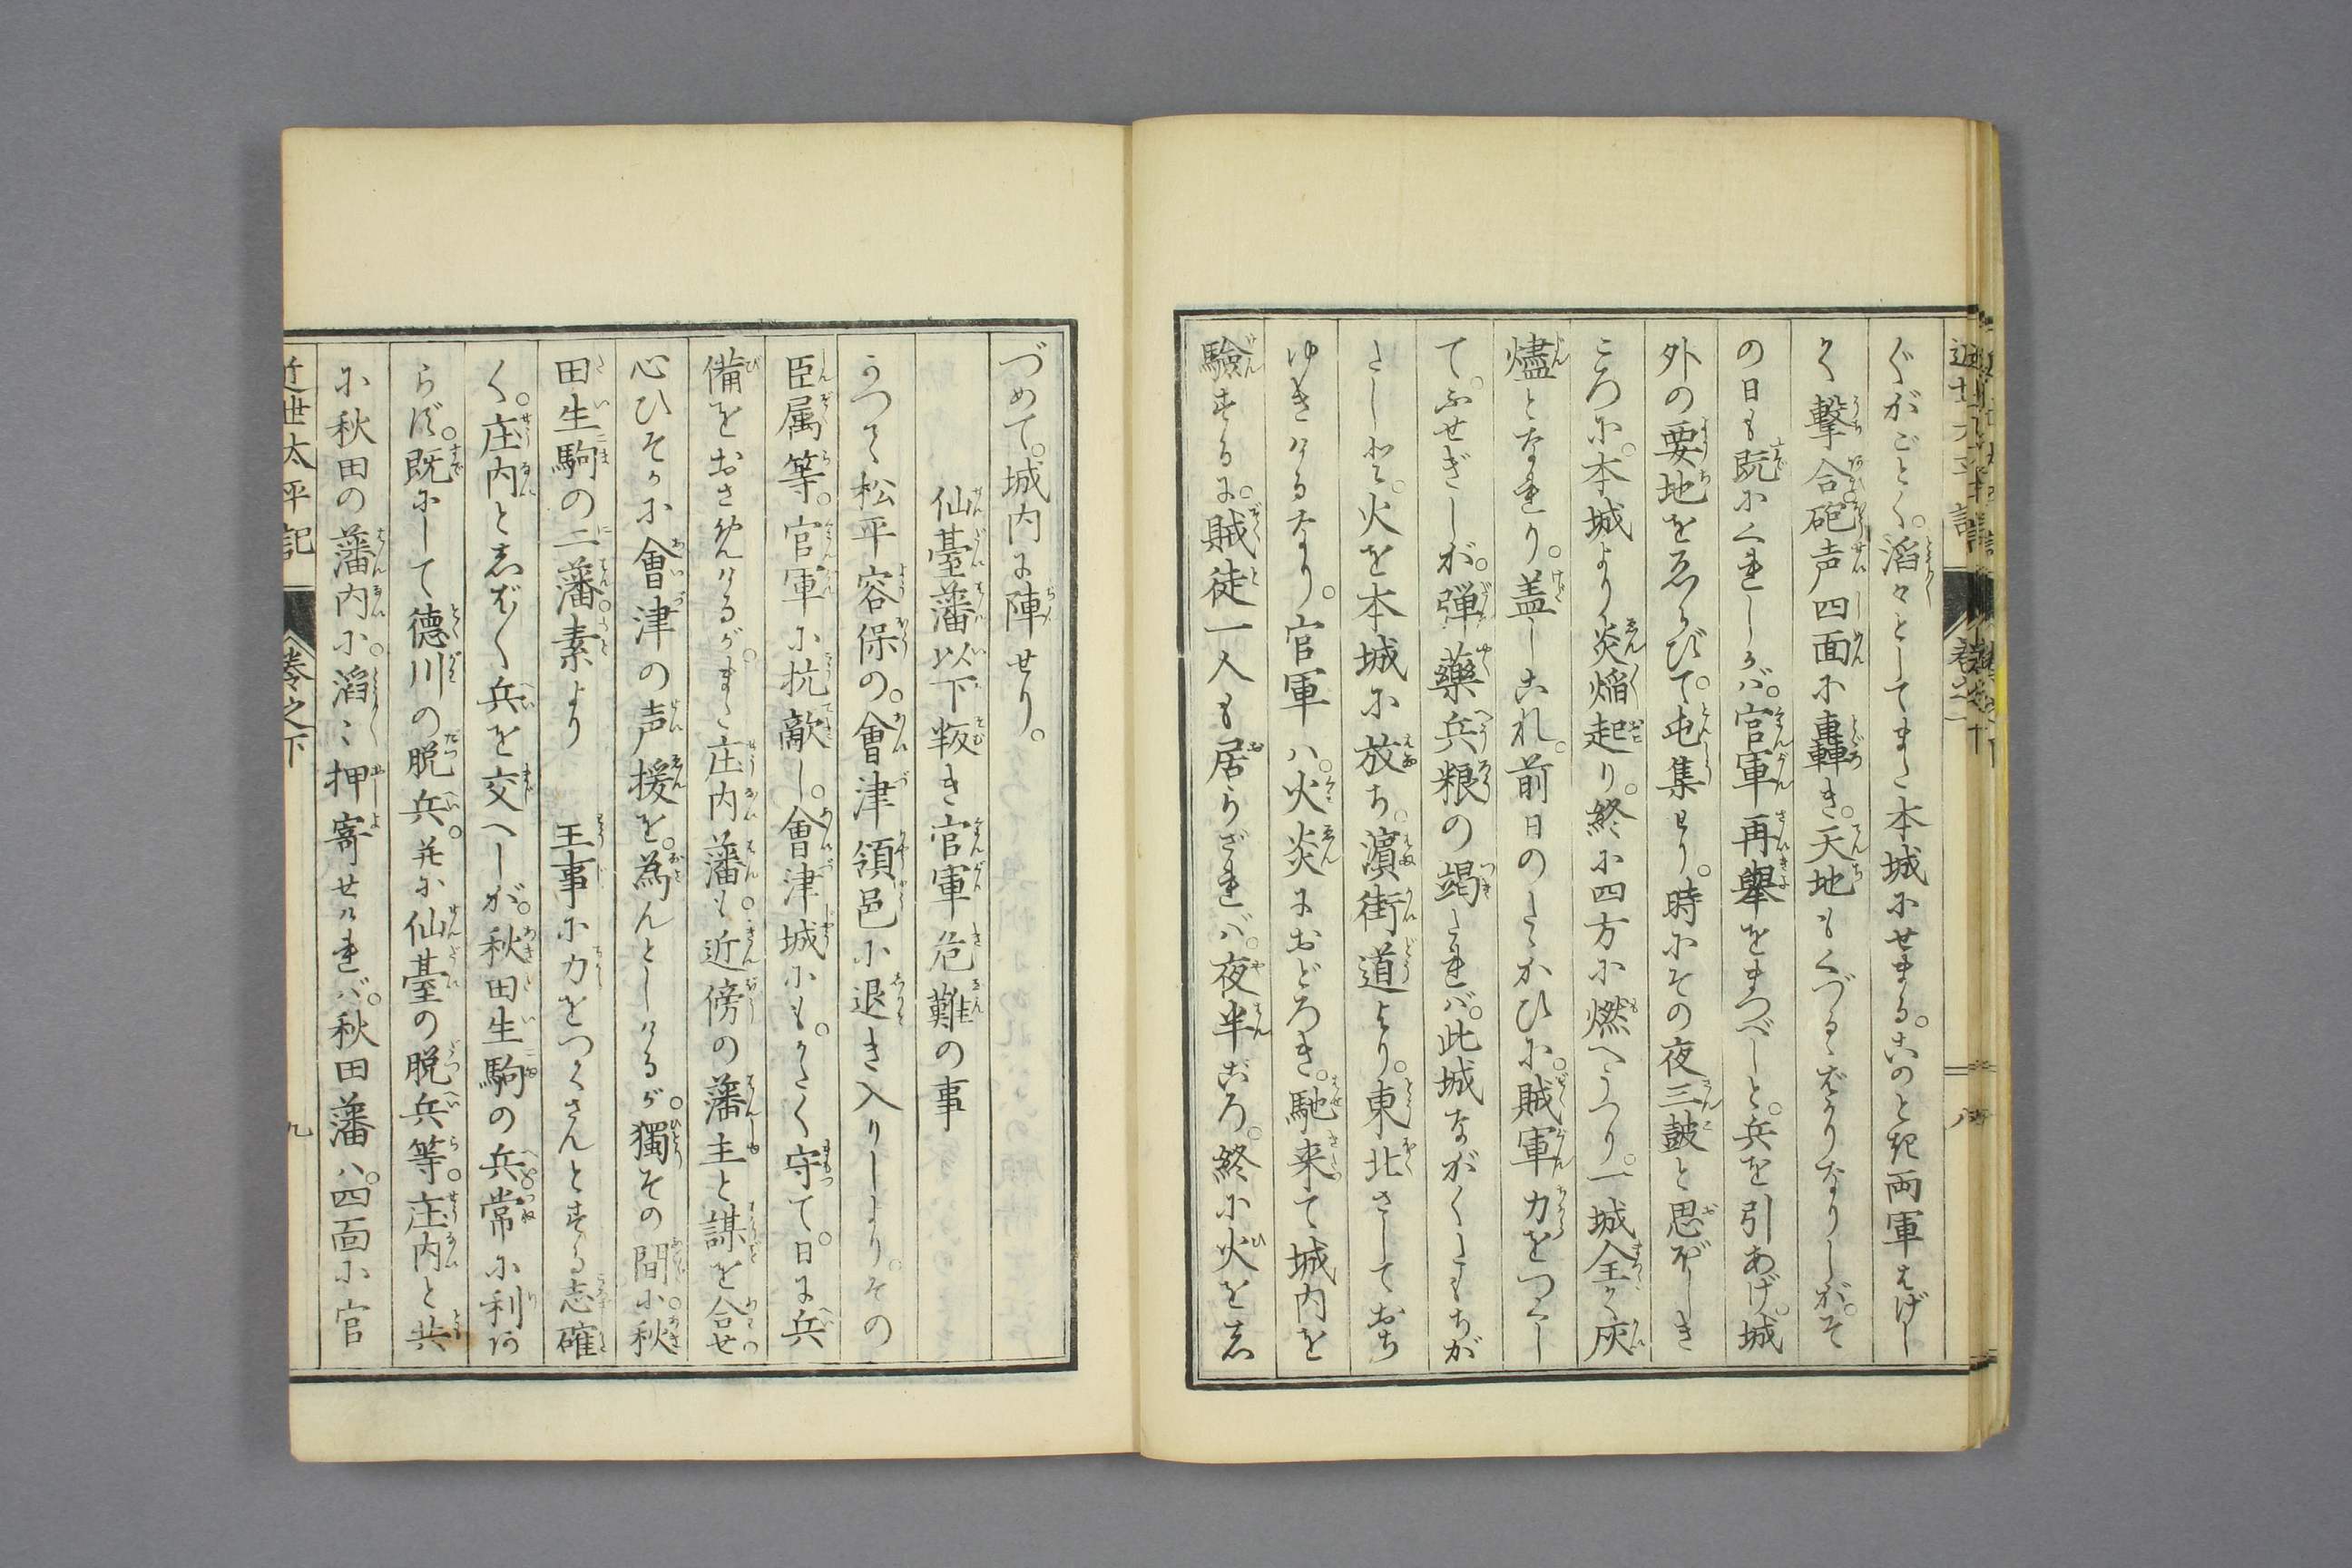 ぐがごとく。滔々としてまた本城にせまる。このとき両軍はげし
く撃合砲声四面に轟き。天地もくづるゝばかりなりしが。そ
の日も既にくれしかバ。官軍再舉をまつべしと。兵を引あげ。城
外の要地をゑらびて。屯集せり。時にその夜三鼓と思ぼしき
ころに。本城より炎焔起り。終に四方に燃へうつり。一城全く灰
燼となれり。蓋しこれ。前日のたゝかひに。賊軍力をつくし
て。ふせぎしが。弾藥兵粮の竭たれバ。此城ながくたもちが
たしと。火を本城に放ち。濵街道より。東北さしておち
ゆきけるなり。官軍ハ。火炎におどろき。馳来て城内を
驗するに。賊徒一人も居らざれバ。夜半ごろ。終に火をし
づめて。城内に陣せり。
仙臺藩以下叛き官軍危難の事
かつて松平容保の。會津領邑に退き入りしより。その
臣属等。官軍に抗敵し。會津城にも。かたく守て。日に兵
備をおさめけるが。また庄内藩も。近傍の藩主と謀を合せ
心ひそかに會津の声援を。為んとしけるが。獨その間に。秋
田生駒の二藩。素より　王事に力をつくさんとする志確
く。庄内としば〳〵兵を交へしが。秋田生駒の兵。常に利あ
らず。既にして徳川の脱兵。并に仙臺の脱兵等。庄内と共
に秋田の藩内に。滔々押寄せけれバ。秋田藩ハ。四面に官
近世太平記　巻之下　九